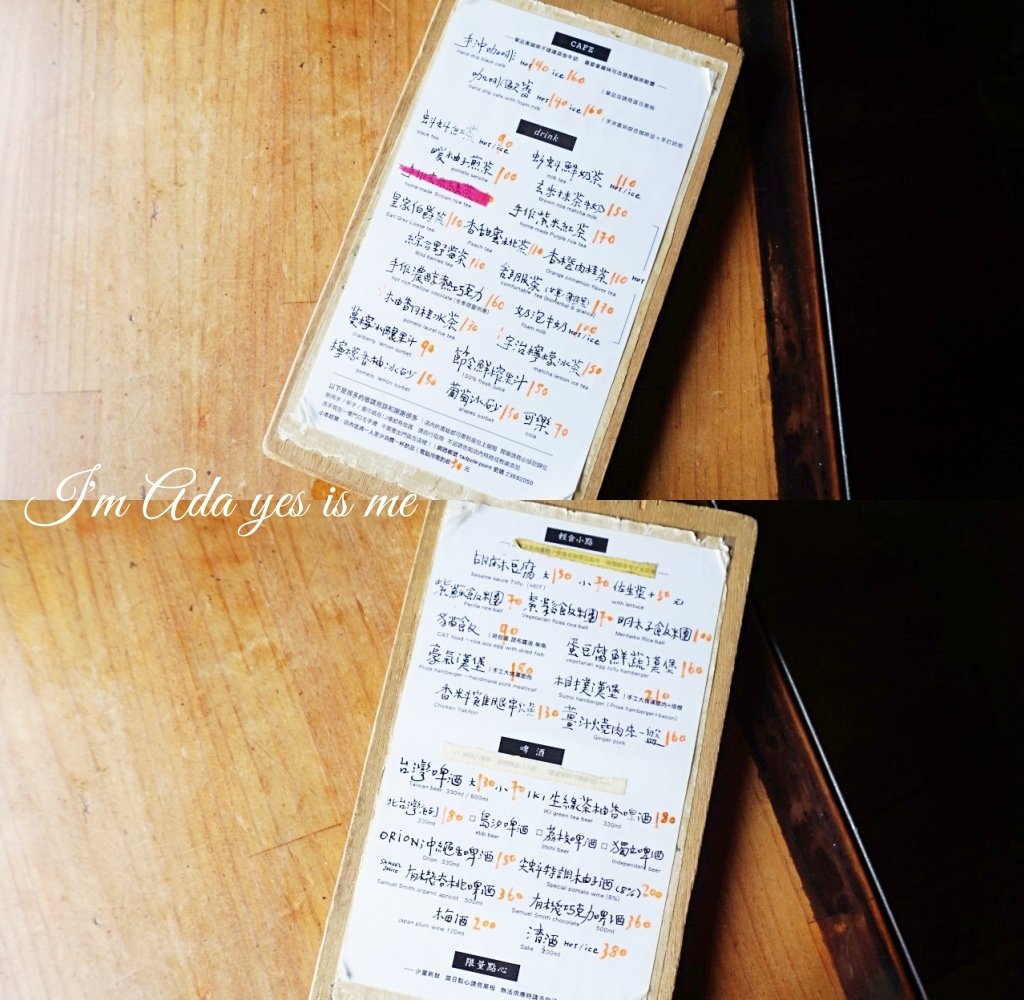 CAFE
手沖咖啡 hot 140 ice 160
hand drip black cafe
咖啡歐蕾 hot 140 ice 160
hand drip cafe with foam milk
drink
蝌蚪紅茶 hot/ice 90
black tea
蝌蚪鮮奶茶 110 hot/ice
milk tea
暖柚子煎茶 100
pomelo sencha
玄米抹茶牛奶 150
Brown rice matcha milk
home made Brown rice tea
手作紫米紅茶 170
home made Purple rice tea
皇家伯爵茶 110
Earl Grey Loose tea
香甜蜜桃茶 110
Peach tea
香橙肉桂茶 110 hot
Orange cinnamon flavor tea
綜合野莓茶 110
Wild berries tea
舒服茶 170
手作濃醇熱巧克力 160
hot rich mellow chocolate
奶泡牛奶 hot/ice 100
foam milk
柚香月桂冰茶 130
pomelo laurel ice tea
宇治檸檬冰茶 150
matcha lemon ice tea
蔓檸冰釀果汁 90
cranberry lemon sorbet
節令鮮榨果汁 150
100% fresh juice
檸檬香柚冰砂 130
pomelo lemon sorbet
葡萄冰砂 150
grapes sorbet
可樂 70
cola
I'm Ada yes is me
輕食小點
胡麻豆腐 大 130 小 70 佐生菜 + 30 元
Sesame sauce Tofu (HOT)
with lettuce
紫蘇飯糰 70
Perilla rice ball
紫菜飯糰 70
Vegetarian floss rice ball
明太子飯糰 100
Mentaiko Rice ball
貓飯 90
CAT food
蛋豆腐鮮蔬漢堡 160
vegetarian egg tofu hamberger
豪氣漢堡 180
Pride hamberger -handmade pork meatloaf
相撲漢堡 210
Sumo hamberger (Pride hamberger+bacon)
香料雞腿串燒 130
Chicken Yakitori
薑汁燒肉來一盤 160
Ginger pork
啤酒
台灣啤酒 大 130 小 70
Taiwan beer 330ml / 600ml
IKI 生綠茶柚香啤酒 180
IKI green tea beer 330ml
北台灣系列 180
330ml
□ 島汐啤酒
ebb beer
□ 荔枝啤酒
litchi beer
□ 獨立啤酒
Independent beer
ORION 沖繩生啤酒 150
Orion 330ml
尖蚪特調柚子酒 (8%) 200
Special pomalo wine (8%)
SAMUEL SMITH 有機杏桃啤酒 360
Samuel Smith organic apricot 500ml
有機巧克力啤酒 360
Samuel Smith chocolate 500ml
梅酒 200
japan plum wine 120ml
清酒 Hot/ice 380
Sake 200ml
限量點心